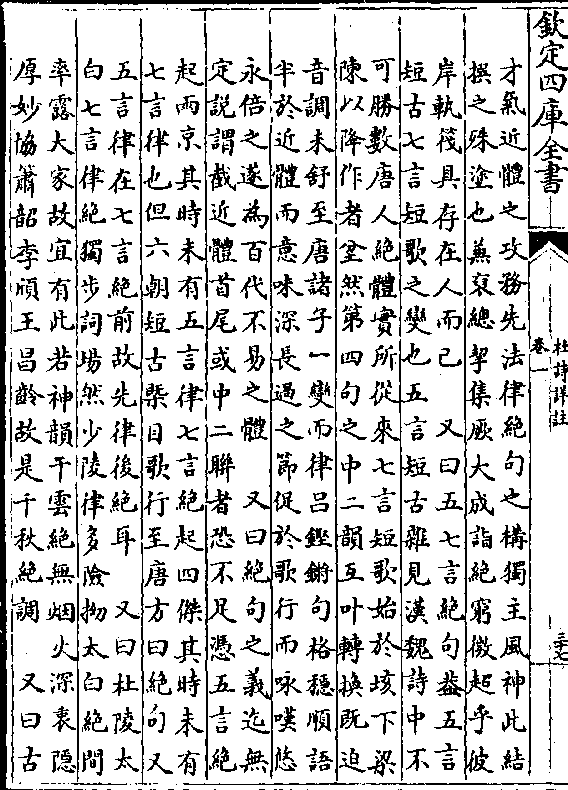 欽定四庫全書
杜詩詳註
卷一
三十七
才氣近體之攻務先法律絶句之構獨主風神此結
撰之殊塗也兼裒總挈集厥大成詣絶窮微超乎彼
岸軌筏具存在人而已 又曰五七言絶句葢五言
短古七言短歌之變也五言短古雜見漢魏詩中不
可勝數唐人絶體實所從來七言短歌始於垓下梁
陳以降作者坌然第四句之中二韻互叶轉換既迫
音調未舒至唐諸子一變而律吕鏗鏘句格穩順語
半於近體而意味深長過之節促於歌行而咏嘆悠
永倍之遂為百代不易之體 又曰絶句之義迄無
定説謂截近體首尾或中二聯者恐不足憑五言絶
起兩京其時未有五言律七言絶起四傑其時未有
七言律也但六朝短古槩目歌行至唐方曰絶句又
五言律在七言絶前故先律後絶耳 又曰杜陵太
白七言律絶獨步詞場然少陵律多險拗太白絶間
率露大家故宜有此若神韻干雲絶無烟火深衷隱
厚妙協簫韶李頎王昌齡故是千秋絶調 又曰古